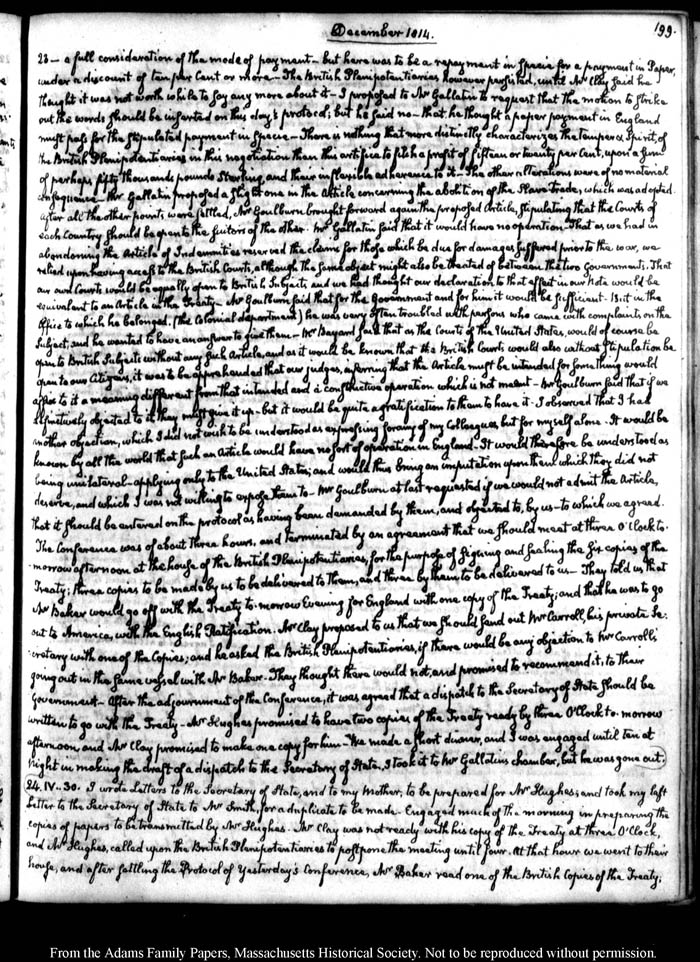 December 1814.
199.
23— a full consideration of the mode of payment— but here was to be a repayment in Specie for a payment in Paper,
under a discount of ten per Cent or more— The British Plenipotentiaries however persisted, until Mr Clay said he
thought it was not worth while to say any more about it— I proposed to Mr Gallatin to request that the motion to strike
out the words should be inserted on this day's protocol; but he said no— that he thought a paper payment in England
must pass for the stipulated payment in Specie— There is nothing that more distinctly characterizes the temper & Spirit, of
the British Plenipotentiaries in this negotiation than this artifice to filch a profit of fifteen or twenty per Cent, upon a sum
of perhaps fifty thousands pounds Sterling, and their inflexible adherence to it— The other alterations were of no material
consequence— Mr Gallatin proposed a slight one in the Article concerning the abolition of the Slave trade, which was adopted
After all the other points were settled, Mr Goulburn brought forward again the proposed Article, stipulating that the Courts of
each Country should be open to the suitors of the other. Mr Gallatin said that it would have no operation— That as we had in
abandoning the Article of Indemnities reserved the claims for those which be due for damages suffered prior to the war, we
relied upon having access to the British Courts, although the same object might also be treated of between the two Governments. That
our own Courts would be equally open to British Subjects and we had thought our declaration, to that effect in our Note would be
equivalent to an Article in the Treaty— Mr Goulburn said that for the Government and for him it would be sufficient. But in the
Office to which he belonged, (the Colonial department) he was very often troubled with persons who came with complaints on the
Subject, and he wanted to have an answer to give them— Mr Bayard said that as the Courts of the United States, would of course be
open to British Subjects without any such Article, and as it would be known that the British Courts would also without stipulation be
open to our Citizens, it was to be apprehended that our judges, inferring that the Article must be intended for something would
affix to it a meaning different from that intended and a constructive operation which is not meant— Mr Goulburn said that if we
definitively objected to it they must give it up— but it would be quite a gratification to them to have it— I observed that I had
another objection, which I did not wish to be understood as expressing for any of my Colleagues, but for myself alone. It would be
known by all the world that such an Article would have no sort of operation in England— It would therefore be understood as
being unilateral— applying only to the United States; and would thus bring an imputation upon them which they did not
deserve, and which I was not willing to expose them to— Mr Goulburn at last requested if we would not admit the Article,
that it should be entered on the protocol as having been demanded by them, and objected to, by us— to which we agreed.
The Conference was of about three hours, and terminated by an agreement that we should meet at three O'Clock to-
morrow afternoon at the house of the British Plenipotentiaries, for the purpose of signing and sealing the six copies of the
Treaty; three copies to be made by us to be delivered to them, and three by them to be delivered to us— They told us that
Mr Baker would go off with the Treaty to-morrow Evening for England with one copy of the Treaty; and that he was to go
out to America, with the English Ratification. Mr Clay proposed to us that we should send out Mr Carroll, his private Se-
cretary with one of the Copies; and he asked the British Plenipotentiaries, if there would be any objection to Mr Carroll's
going out in the same vessel with Mr Baker. They thought there would not, and promised to recommend it, to their
Government— After the adjournment of the Conference, it was agreed that a dispatch to the Secretary of State should be
written to go with the Treaty— Mr Hughes promised to have two copies of the Treaty ready by three O'Clock to-morrow
afternoon, and Mr Clay promised to make one copy for him— We made a short dinner, and I was engaged until ten at
Night in making the draft of a dispatch to the Secretary of State. I took it to Mr Gallatin's chamber, but he was gone out.
24. IV.30. I wrote Letters to the Secretary of State, and to my Mother, to be prepared for Mr Hughes; and took my last
Letter to the Secretary of State to Mr Smith, for a duplicate to be made. Engaged much of the morning in preparing the
copies of papers to be transmitted by Mr Hughes. Mr Clay was not ready with his copy of the Treaty at three O'Clock,
and Mr Hughes, called upon the British Plenipotentiaries to postpone the meeting until four. At that hour we went to their
house, and after settling the Protocol of Yesterday's Conference, Mr Baker read one of the British Copies of the Treaty;
From the Adams Family Papers, Massachusetts Historical Society. Not to be reproduced without permission.